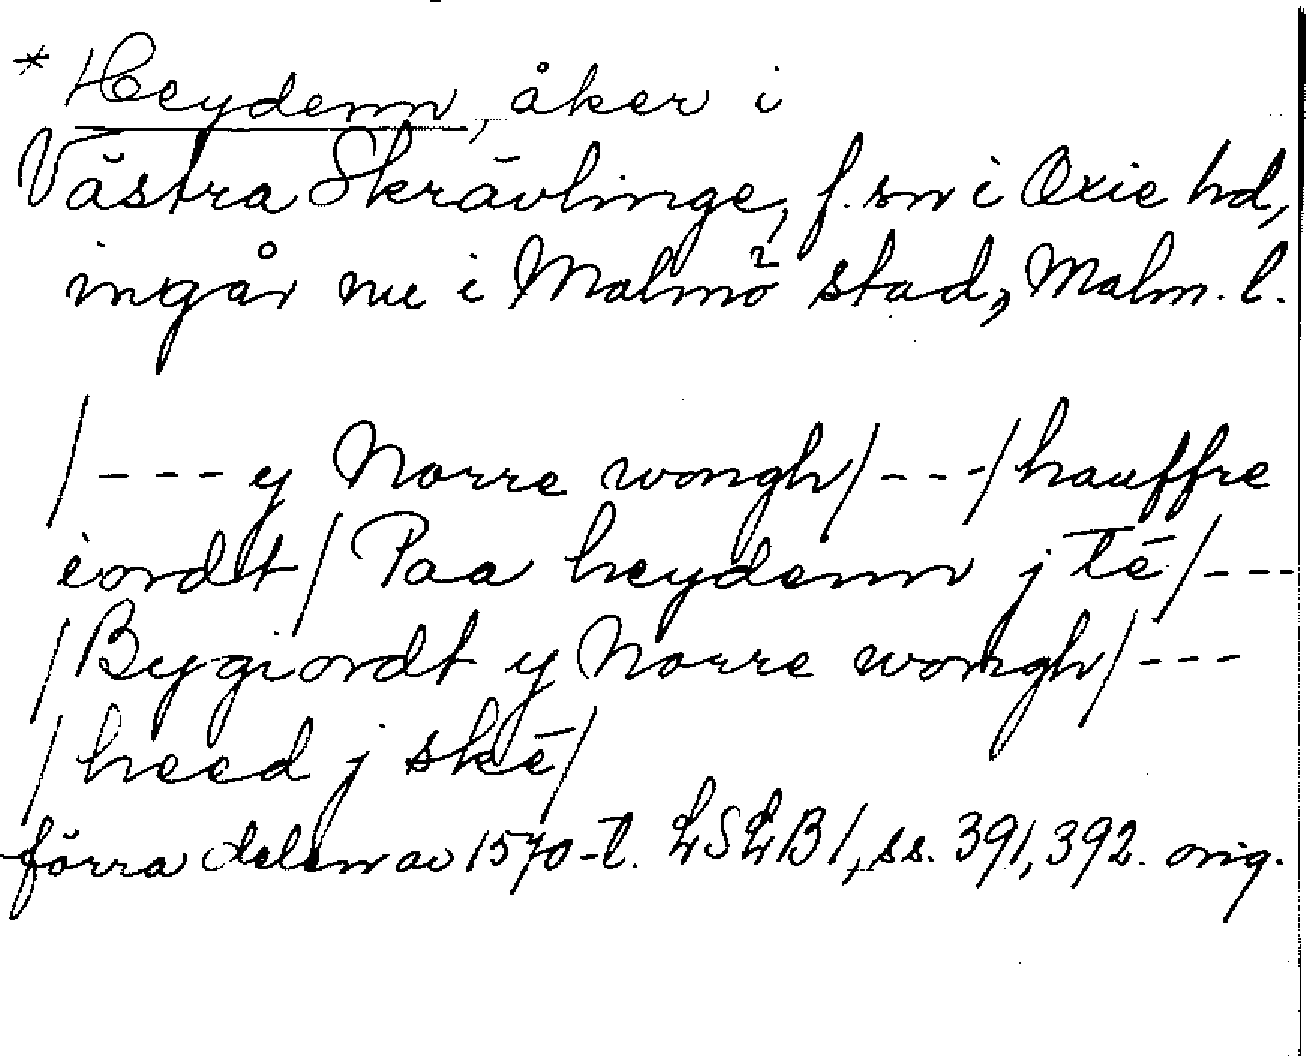 * Heydenn, åker i
Västra Skrävlinge, f. sn i Oxie hd,
ingår nu i Malmö stad, Malm. l.
/---y Norre wongh/---/hauffre
iordt/ Paa heydenn j tē/---
/Bygiordt y Norre wongh/---
/heed j skē/
förra delen av 1570-t. LSLB 1, ss. 391, 392. orig.